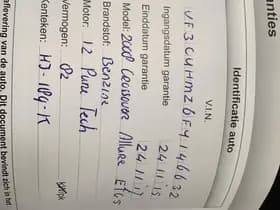 anties
Identificatie auto
V.I.N.
VF3CUHMZ6FY146632
Ingangsdatum garantie
24.11.15
Einddatum garantie
24.11.17
Model: 2008 Crossover Allure
Brandstof: Benzine
ET6s
Motor: 12 Pure Tech
Vermogen: 02
Kenteken: HJ-189-K
aflevering van de auto. Dit document bevindt zich in het